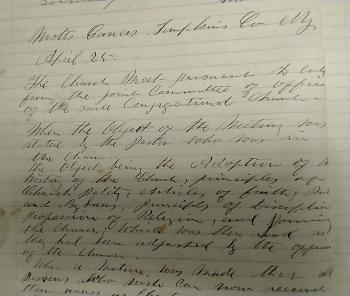 Corners Tompkins Co N.Y.
April 25
The Church Meet pursuant to call
from the joint Committee of
of the said Congregational Church
When the Object of the Meeting was
stated by the Pastor who was in
the Chair
the Object being the Adoption of a
of the Church, principles of
Church Polity, Articles of faith,
and By Laws, principles of Discipline
Profession of Religion, and forming
the Church, which was then read as
they had been adjusted by the
of the Church
then a Motion was Made that all
persons who wish can now
their names